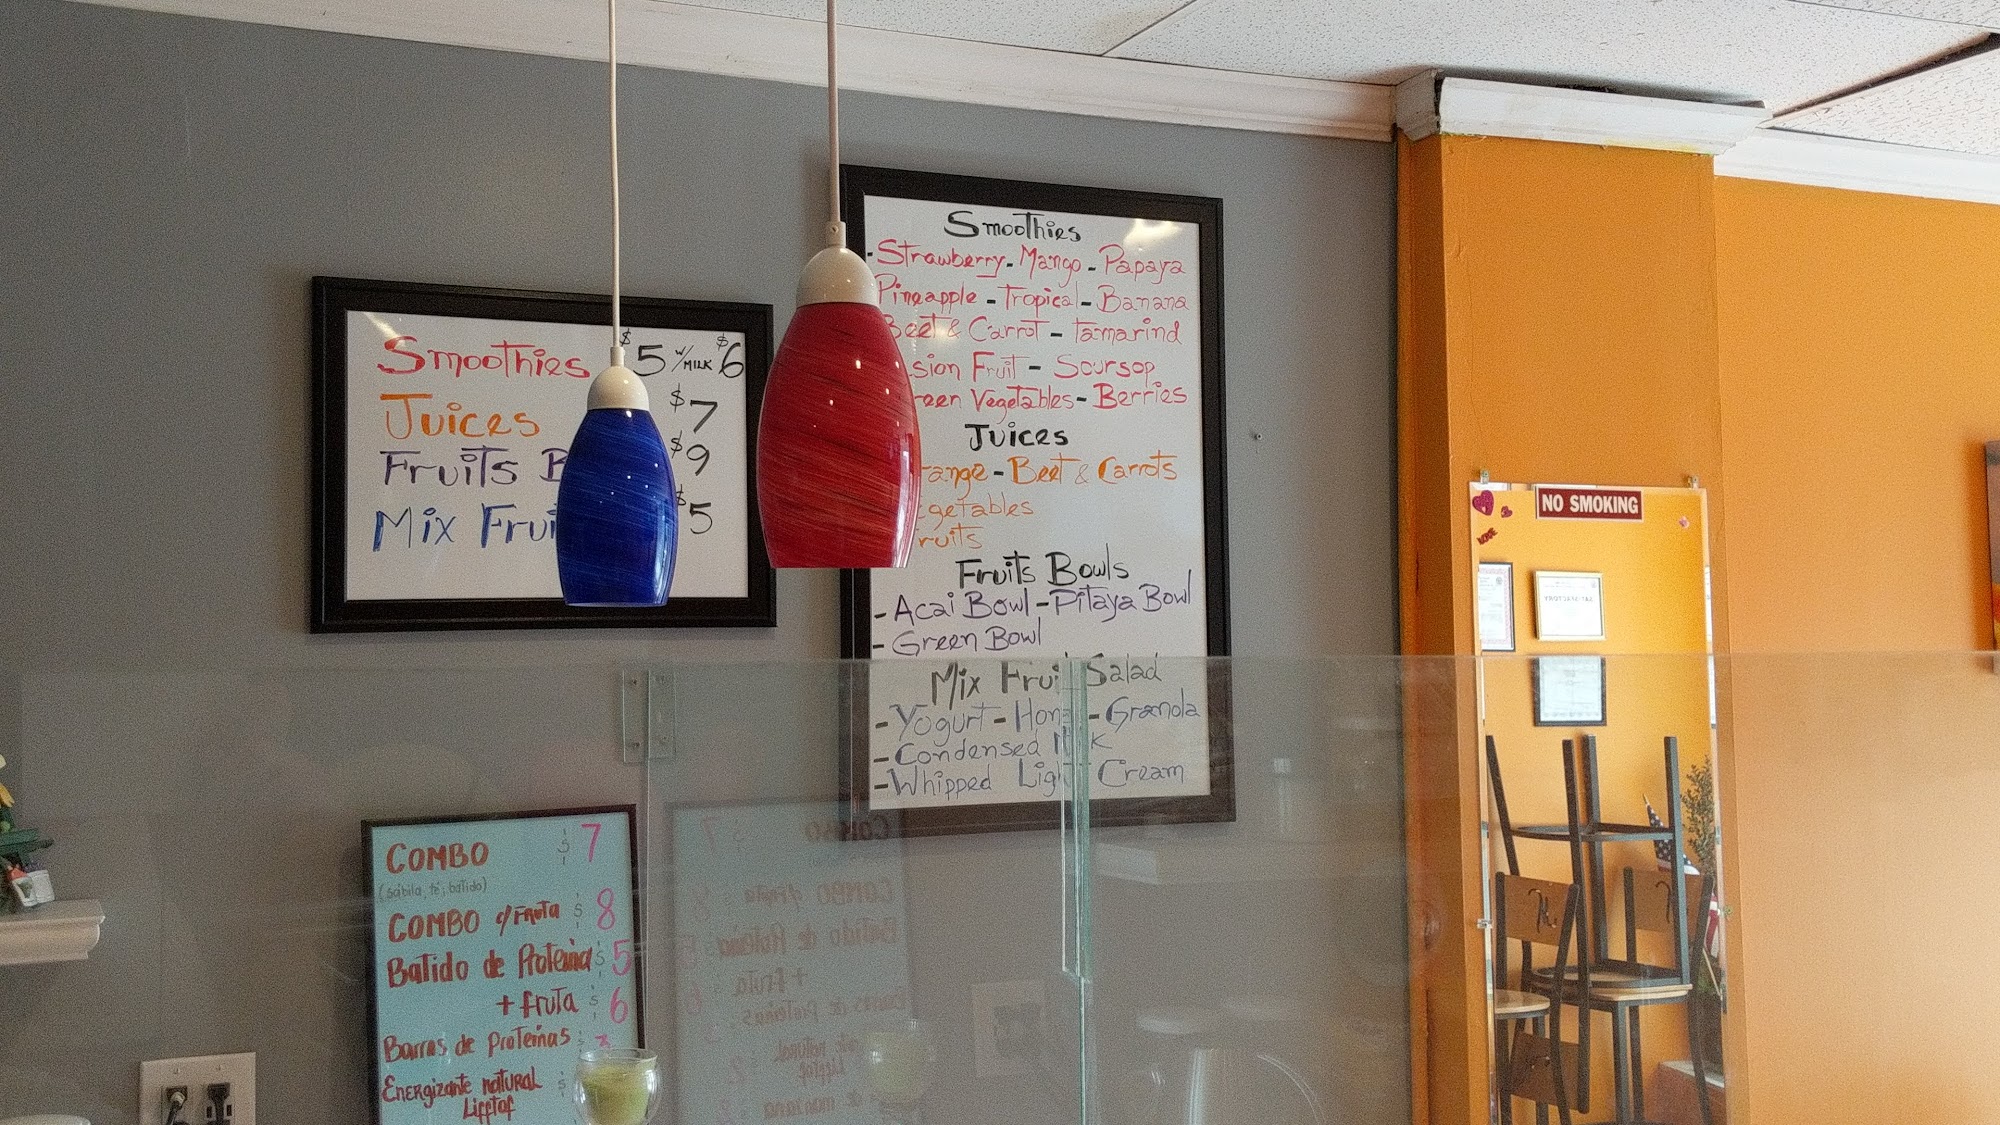 Smoothies $5 w/MILK $6
Juices $7
Fruits $9
Mix $5
Smoothies
- Strawberry - Mango - Papaya
Pineapple - Tropical - Banana
Beet & Carrot - Tamarind
Fruit - Soursop
Vegetables - Berries
Juices
- Beet & Carrots
Fruits Bowls
- Acai Bowl - Pitaya Bowl
- Green Bowl
Mix Fruit Salad
- Yogurt - Honey - Granola
- Condensed Milk
- Whipped Light Cream
COMBO $7
(sábila, té, batido)
COMBO c/FRUTA $8
Batido de Proteina $5
+ fruta $6
Barras de Proteinas
ENERGIZANTE NATURAL
Lifftof
NO SMOKING
LOVE